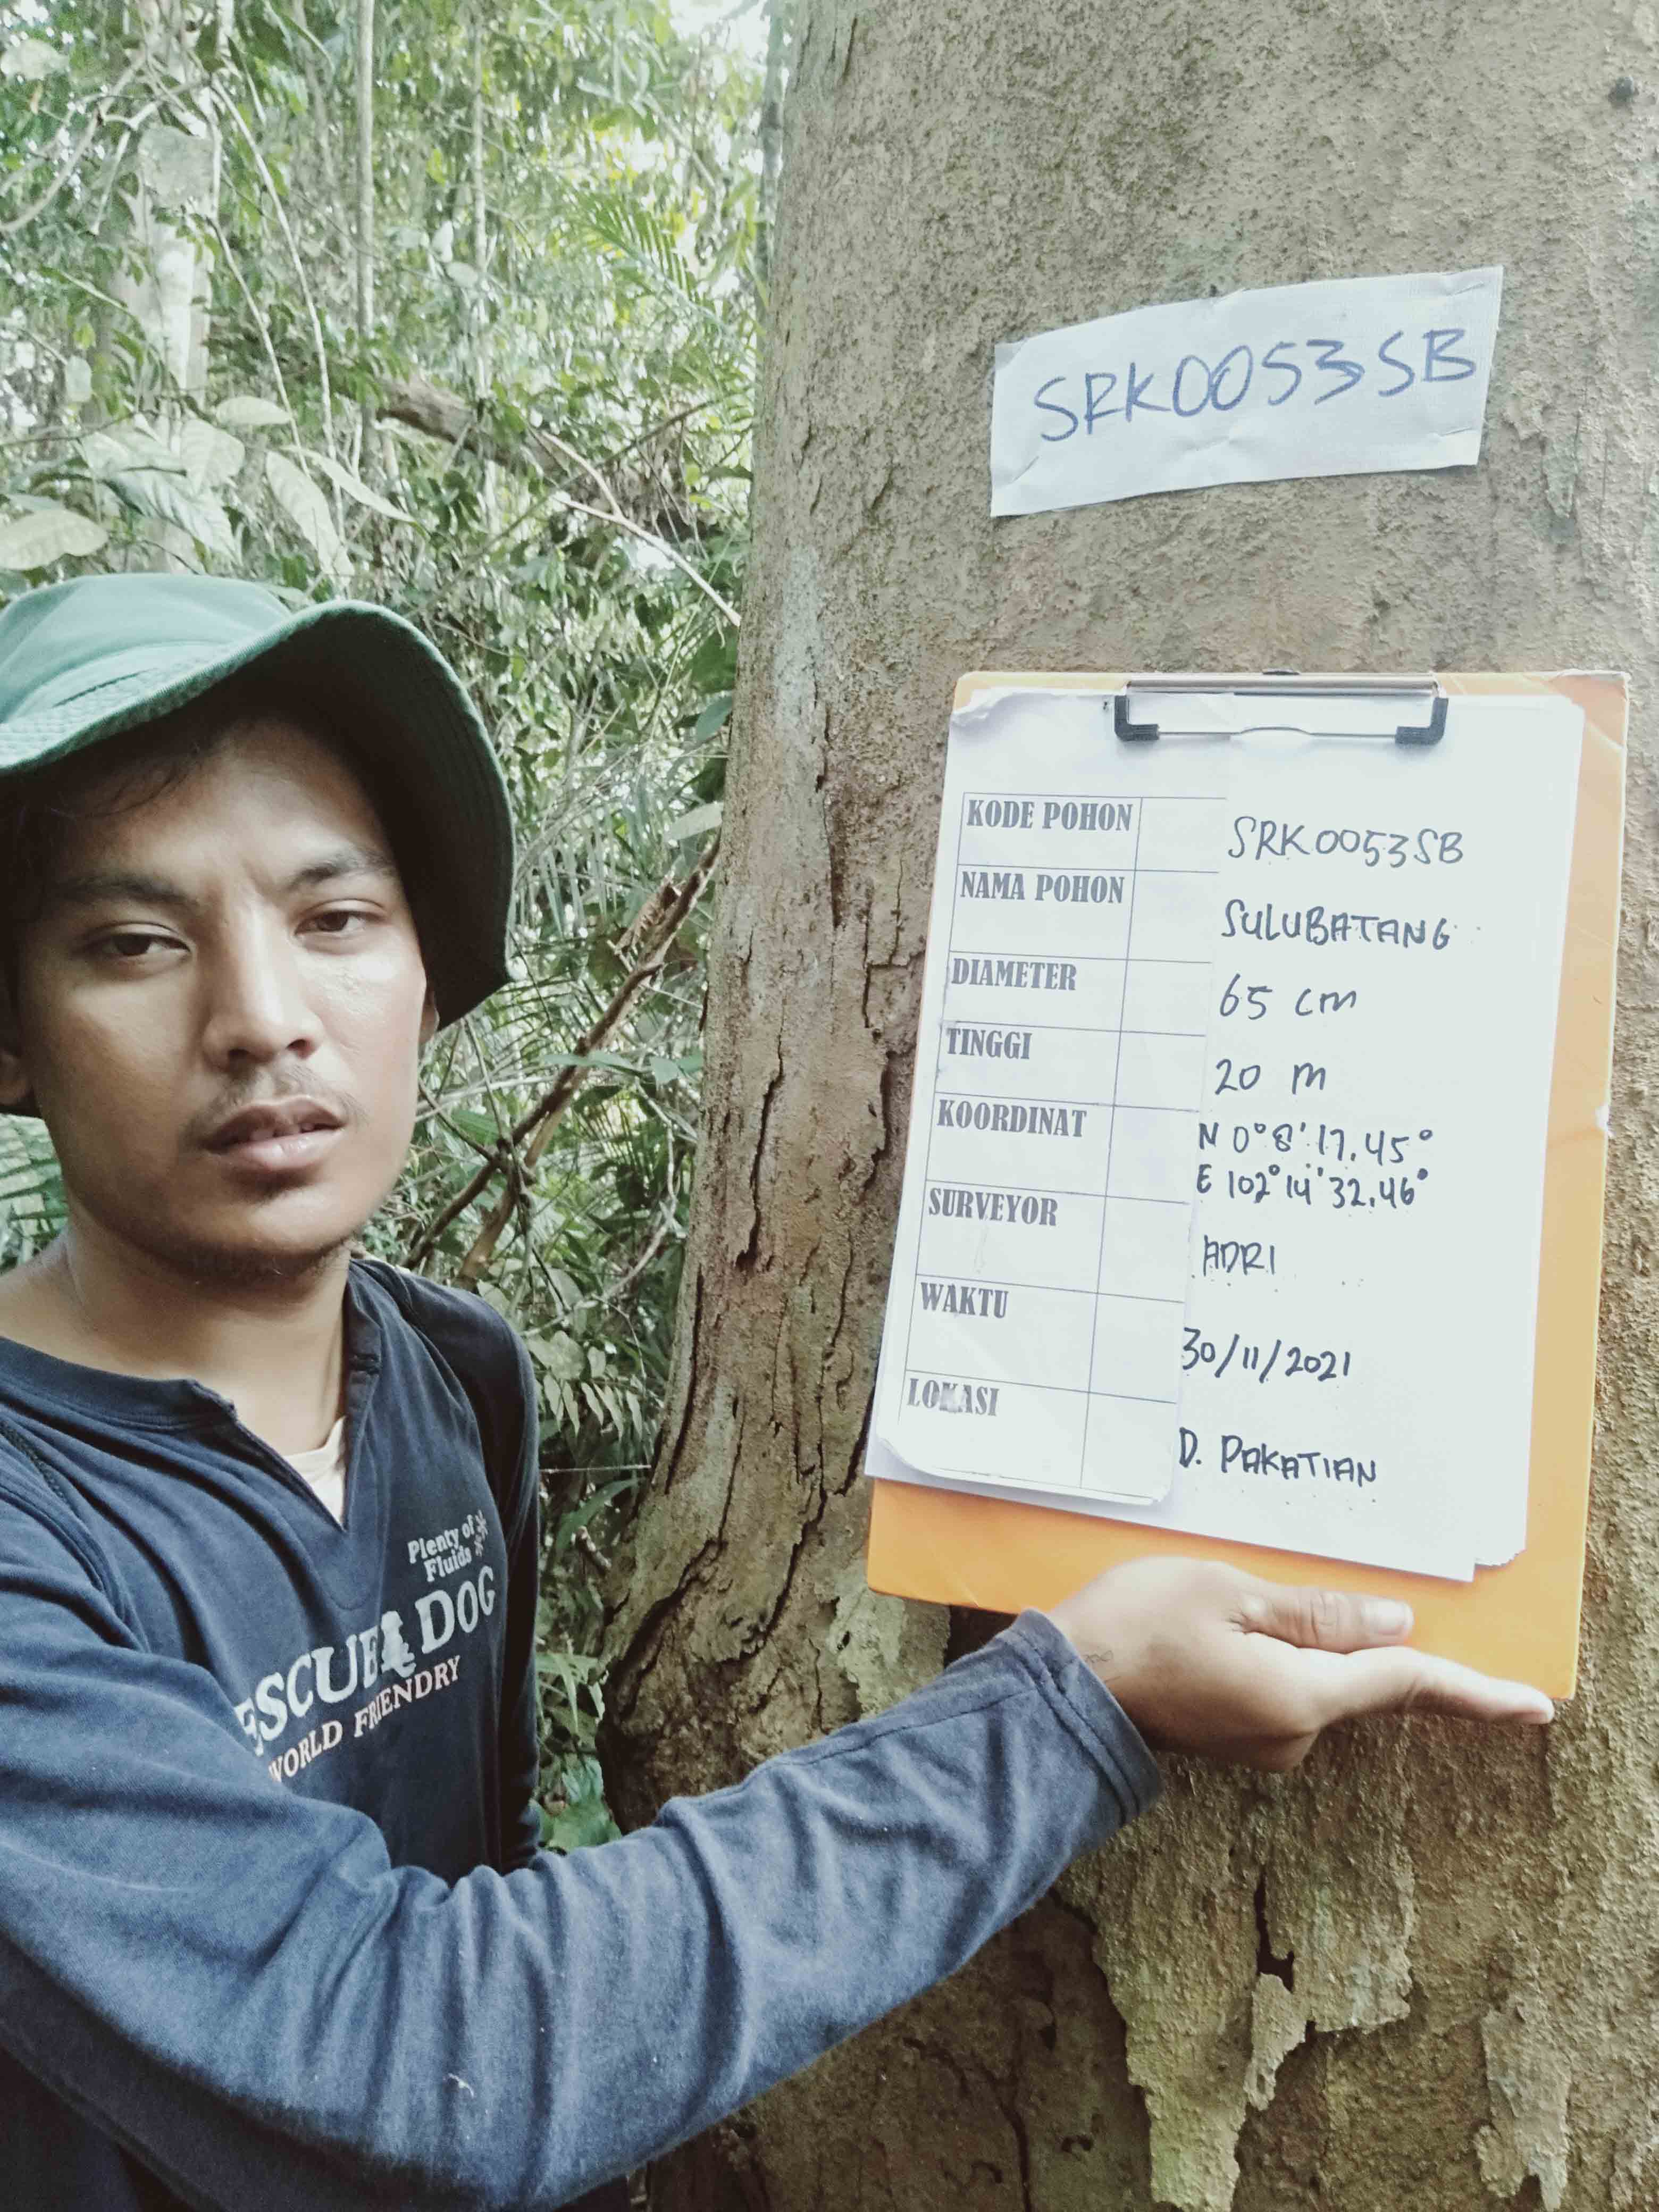 SRK0053SB
KODE POHON SRK0053SB
NAMA POHON SULUBATANG
DIAMETER 65 cm
TINGGI 20 m
KOORDINAT N 0° 8' 17.45°
E 102° 14' 32.46°
SURVEYOR ADRI
WAKTU 30/11/2021
LOKASI D. PAKATIAN
Plenty of
Fluids
ESCUE DOG
WORLD FRIENDRY